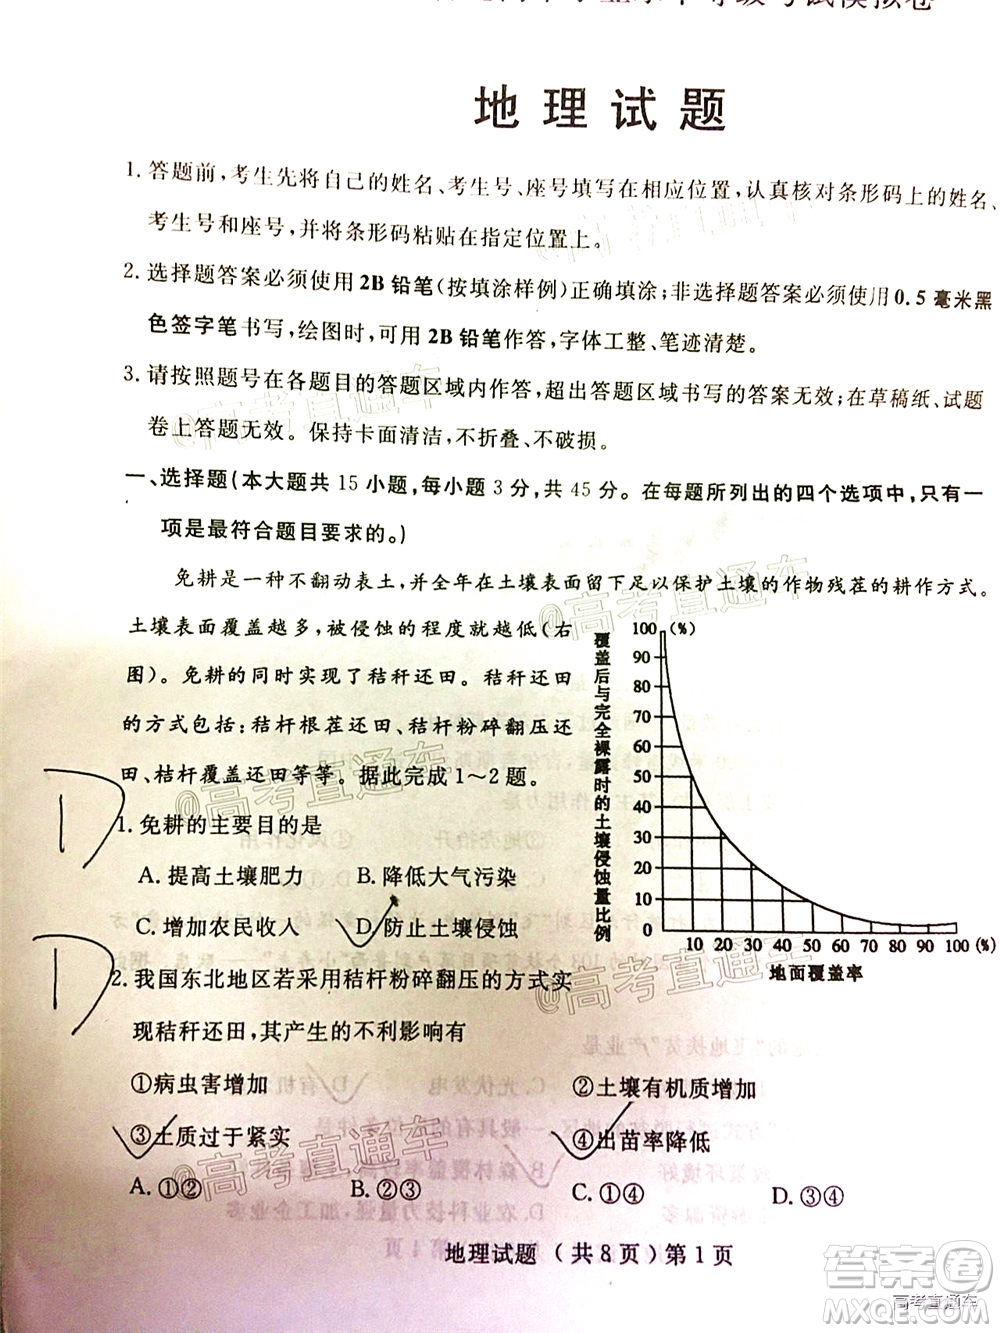 地理试题
1. 答题前,考生先将自己的姓名、考生号、座号填写在相应位置,认真核对条形码上的姓名、
考生号和座号,并将条形码粘贴在指定位置上。
2. 选择题答案必须使用2B铅笔(按填涂样例)正确填涂;非选择题答案必须使用0.5毫米黑
色签字笔书写,绘图时,可用2B铅笔作答,字体工整、笔迹清楚。
3. 请按照题号在各题目的答题区域内作答,超出答题区域书写的答案无效;在草稿纸、试题
卷上答题无效。保持卡面清洁,不折叠、不破损。
一、选择题(本大题共15小题,每小题3分,共45分。在每题所列出的四个选项中,只有一
项是最符合题目要求的。)
免耕是一种不翻动表土,并全年在土壤表面留下足以保护土壤的作物残茬的耕作方式。
土壤表面覆盖越多,被侵蚀的程度就越低(右
图)。免耕的同时实现了秸秆还田。秸秆还田
的方式包括:秸杆根茬还田、秸杆粉碎翻压还
田、秸杆覆盖还田等等。据此完成1~2题。
D
1. 免耕的主要目的是
A. 提高土壤肥力 B. 降低大气污染
C. 增加农民收入 D. 防止土壤侵蚀
D
2. 我国东北地区若采用秸杆粉碎翻压的方式实
现秸秆还田,其产生的不利影响有
①病虫害增加 ②土壤有机质增加
③土质过于紧实 ④出苗率降低
A. ①② B. ②③ C. ①④ D. ③④
覆盖后与完全裸露时的土壤侵蚀量比例
100 (%)
90
80
70
60
50
40
30
20
10
0
10 20 30 40 50 60 70 80 90 100 (%)
地面覆盖率
地理试题 (共8页)第1页
@高考直通车
@高考直通车
@高考直通车
@高考直通车
@高考直通车
答案卷
MXQE.COM
高考直通车